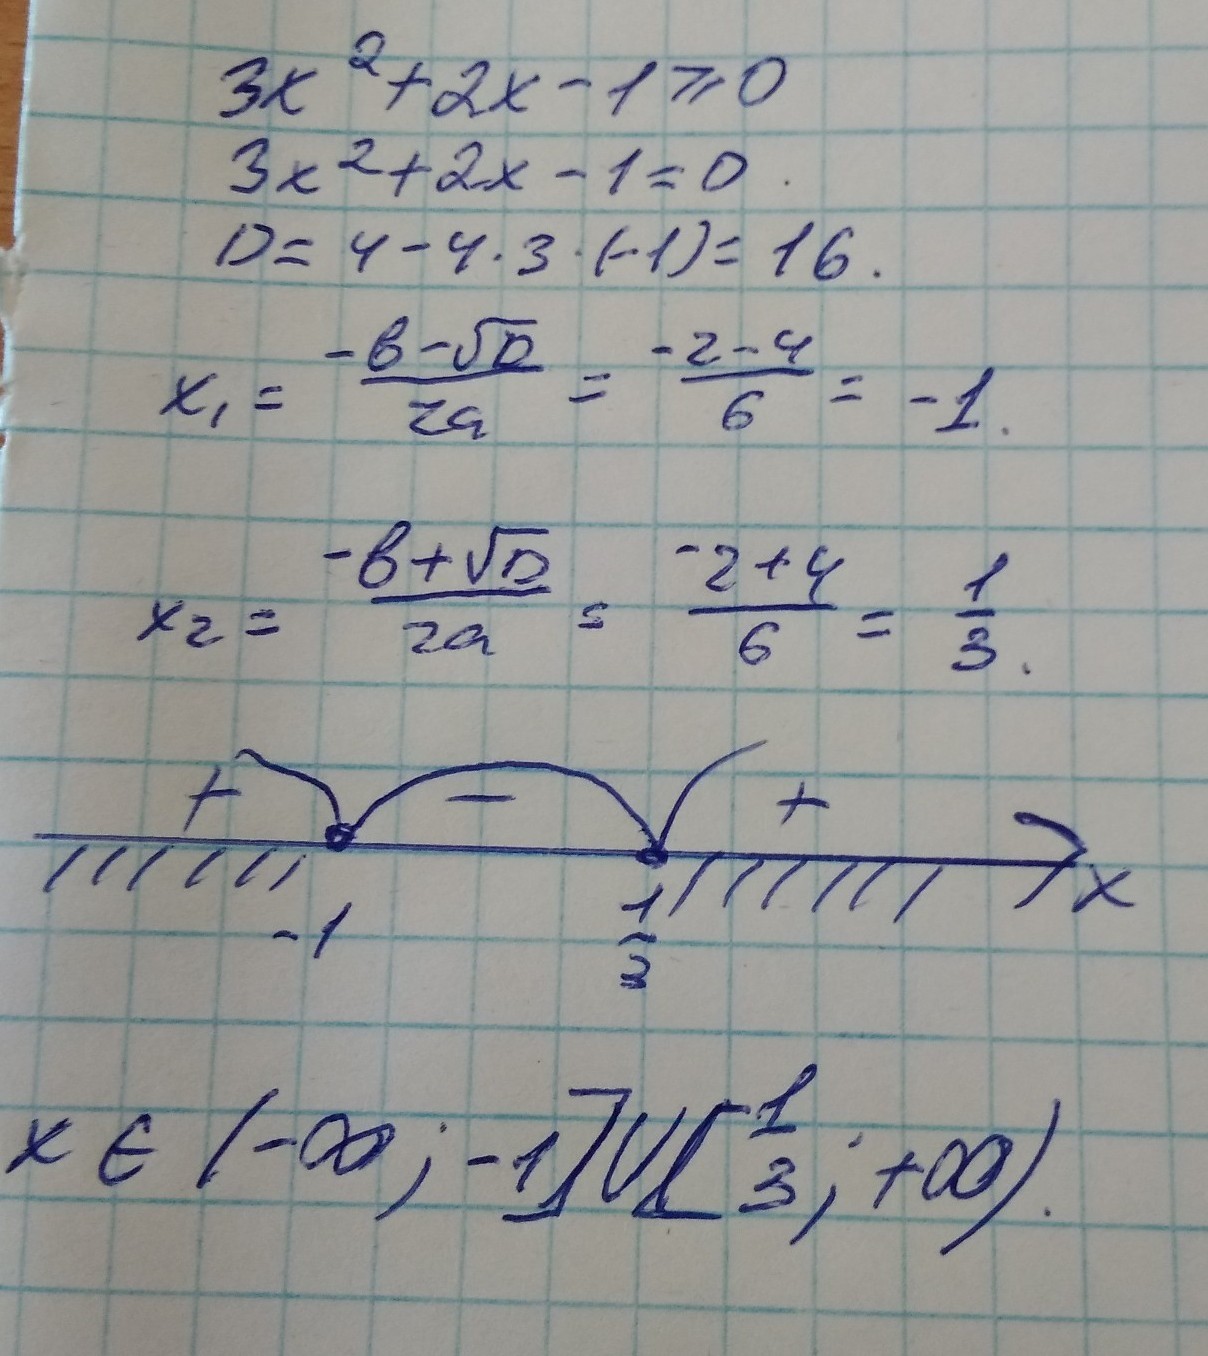 3x² + 2x - 1 ≥ 0
3x² + 2x - 1 = 0.
D = 4 - 4 · 3 · (-1) = 16.
x₁ = (-b - √D)/(2a) = (-2 - 4)/6 = -1.
x₂ = (-b + √D)/(2a) = (-2 + 4)/6 = 1/3.
+ - +
-1 1/3 x
x ∈ (-∞; -1] ∪ [1/3; +∞).